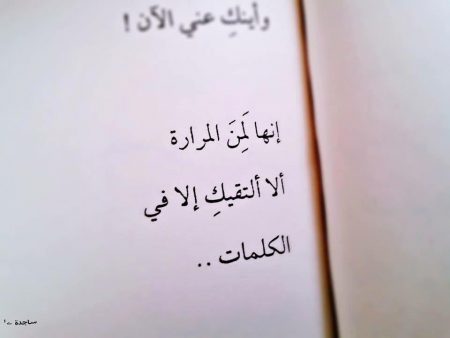 وأينكِ عني الآن !
إنها لَمِنَ المرارة
ألا ألتقيكِ إلا في
الكلمات ..
ساجدة